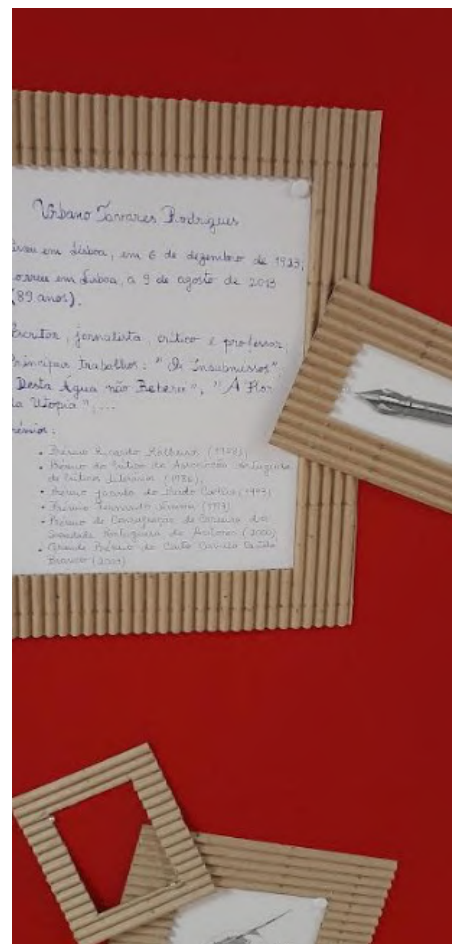 Urbano Tavares Rodrigues
em Lisboa, em 6 de dezembro de 1923,
em Lisboa, a 9 de agosto de 2013
(89 anos).
Escritor, jornalista, crítico e professor,
Principais trabalhos: "Os Insubmissos"
Desta Água não Beberei", "A Flor
da Utopia",...
• Prémio Ricardo Malheiros (1958);
• Prémio da Crítica da Associação Portuguesa
de Críticos Literários
• Prémio Jacinto do Prado Coelho
• Prémio Fernando Namora
• Prémio de Consagração de Carreira da
Sociedade Portuguesa de Autores
• Grande Prémio do Conto Camilo Castelo
Branco